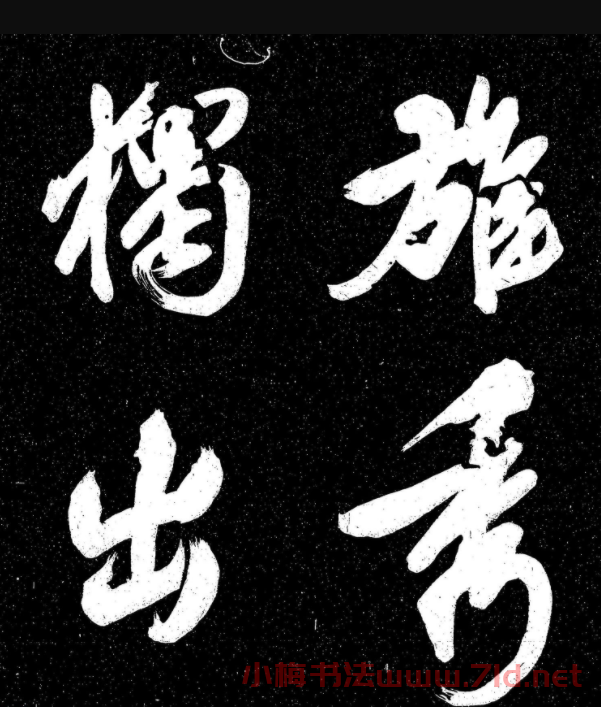 雄秀
獨出
小梅书法www.7ld.net